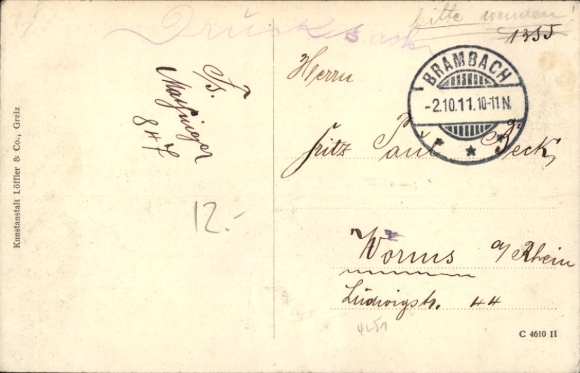 Drucksache
bitte wenden
1355
BRAMBACH
-2.10.11.10-11N.
Herrn
Fritz Paul Beck,
Worms a/Rhein
Ludwigstr. 44
C 4610 II
c/s.
847
12.-
Kunstanstalt Löffler & Co., Greiz